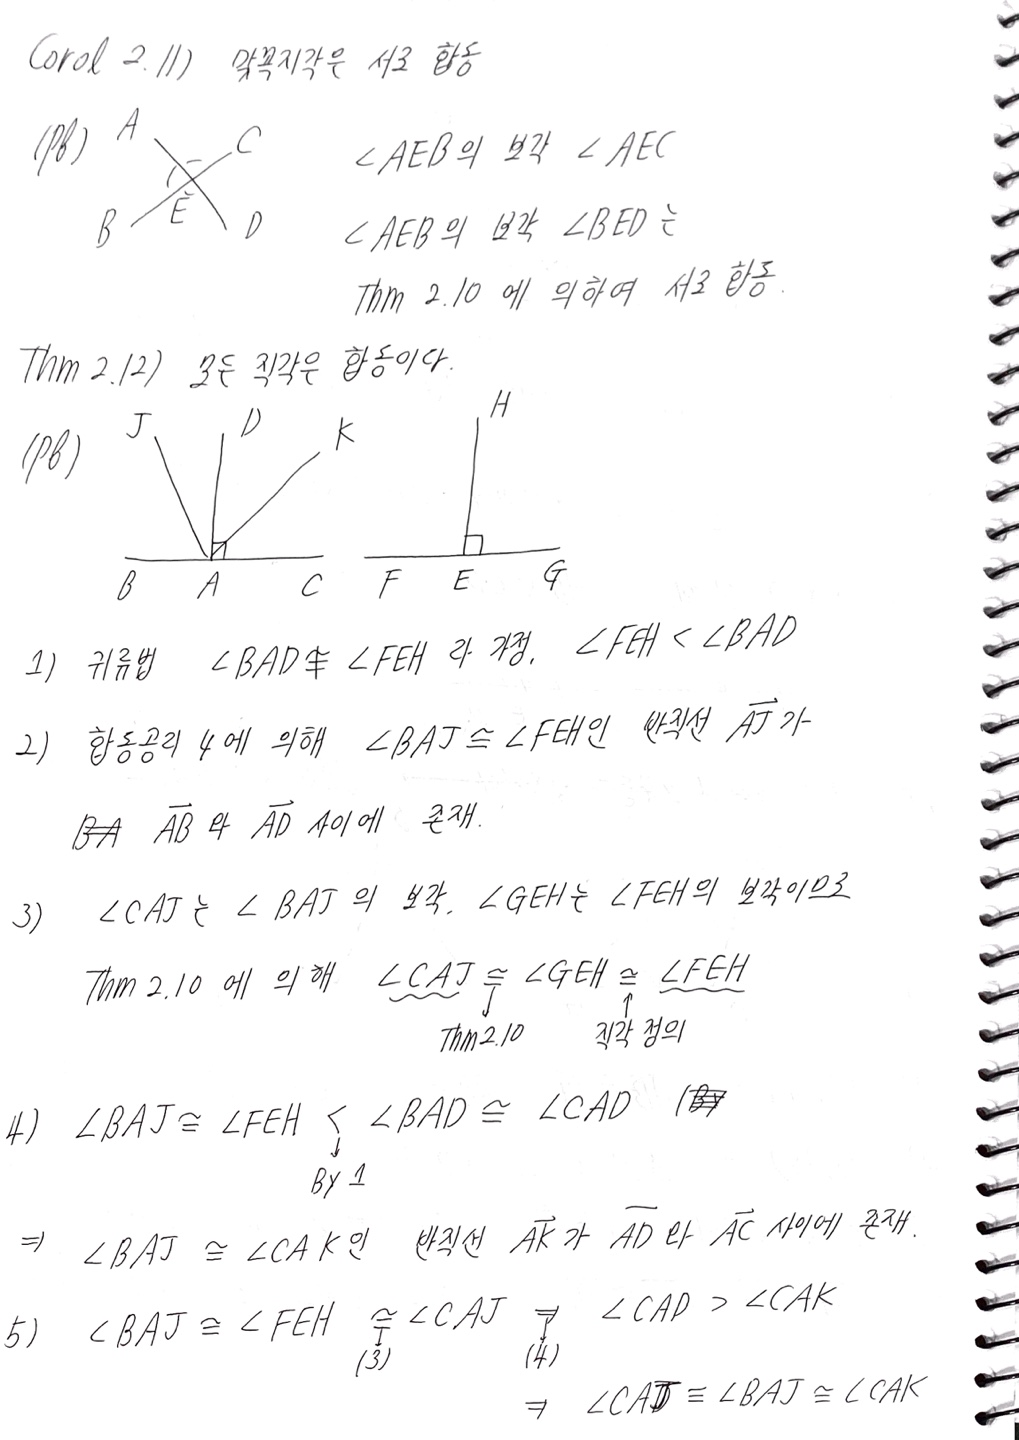 Corol 2.11) 맞꼭지각은 서로 합동
(pf) A C B E D
∠AEB의 보각 ∠AEC
∠AEB의 보각 ∠BED는
Thm 2.10 에 의하여 서로 합동.
Thm 2.12) 모든 직각은 합동이다.
(pf) J D K H
B A C F E G
1) 귀류법 ∠BAD≇∠FEH 라 가정. ∠FEH < ∠BAD
2) 합동공리 4에 의해 ∠BAJ ≅ ∠FEH인 반직선 AJ가
BA AB 와 AD 사이에 존재.
3) ∠CAJ는 ∠BAJ의 보각. ∠GEH는 ∠FEH의 보각이므로
Thm 2.10 에 의해 ∠CAJ ≅ ∠GEH ≅ ∠FEH
Thm2.10 직각 정의
4) ∠BAJ ≅ ∠FEH < ∠BAD ≅ ∠CAD (By
By 1
⇒ ∠BAJ ≅ ∠CAK인 반직선 AK가 AD 와 AC 사이에 존재.
5) ∠BAJ ≅ ∠FEH ≅ ∠CAJ ⇒ ∠CAD > ∠CAK
(3) (4)
⇒ ∠CAJ ≡ ∠BAJ ≅ ∠CAK